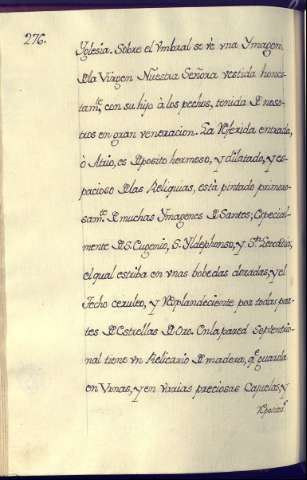 276.
Yglesia. Sobre el Vmbral se vè vna Ymagen
de la Virgen Nuestra Señora vestida hones-
tamte. con su hijo à los pechos, tenida de noso-
tros en gran veneracion. La Referida entrada,
ò Atrio, es deposito hermoso, y dilatado, y es-
pacioso de las Reliquias, està pintado primoro-
samte. de muchas Ymagenes de Santos, especial-
mente de S. Eugenio, S. Yldephonso, y Sta. Leocadia,
el qual estriba en vnas bobedas doradas, y el
Techo ceruleo, y Resplandeciente por todas par-
tes de Estrellas de Oro. En la pared Septentrio-
nal tiene vn Relicario de madera, qe. guarda
en Vrnas, y en varias preciosas Capsulas, y